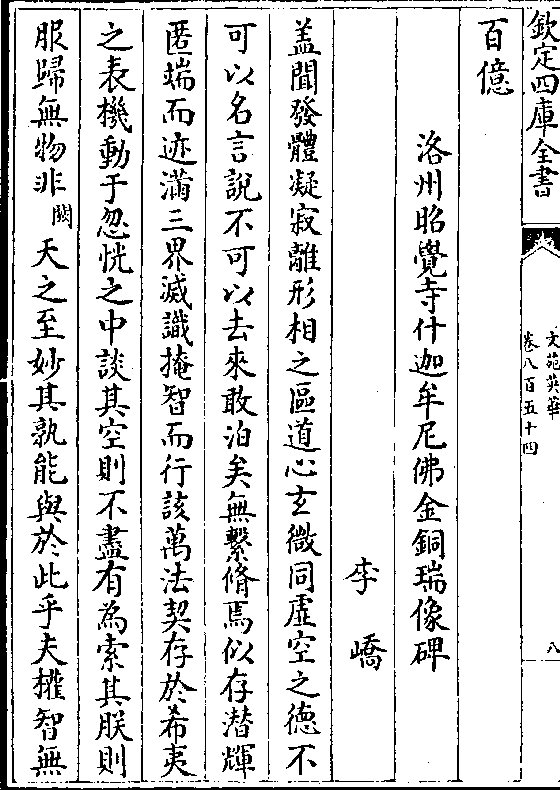 欽定四庫全書
文苑英華
卷八百五十四
八
百億
洛州昭覺寺什迦牟尼佛金銅瑞像碑
李嶠
盖聞發體凝寂離形相之區道心玄微同虛空之德不
可以名言說不可以去來敢泊矣無繫脩焉似存潜輝
匿端而迹滿三界滅識掩智而行該萬法契存於希夷
之表機動于忽恍之中談其空則不盡有為索其朕則
服歸無物非闕天之至妙其孰能與於此乎夫權智無